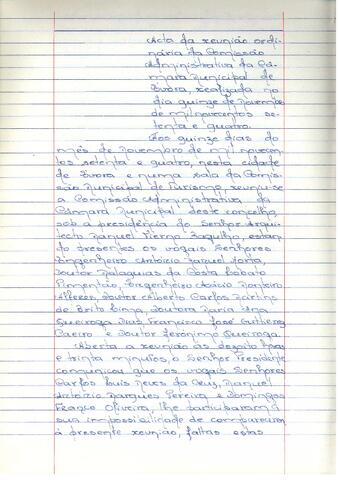 Acta da reunião ordi-
nária da Comissão
Administrativa da Câ-
mara Municipal de
Évora, realizada no
dia quinze de Novembro
de mil novecentos se-
tenta e quatro.
Aos quinze dias do
mês de Novembro de mil novecen-
tos setenta e quatro, nesta cidade
de Évora e numa sala da Comis-
são Municipal de Turismo, reuniu-se
a Comissão Administrativa da
Câmara Municipal deste concelho,
sob a presidência do Senhor Arqui-
tecto Manuel Pierna estan-
do presentes os vogais Senhores
Engenheiro António Manuel
Doutor Malaquias da Costa Lobato
Pimentão, Engenheiro Acácio Monteiro
Alferes, Doutor Alberto Carlos Martins
de Brito Lima, Doutora Maria Ana
Queiroga Dias, Francisco José Gutierrez
Caeiro e Doutor Jerónimo Queiroga.
Aberta a reunião às dezoito horas
e trinta minutos, o Senhor Presidente
comunicou que os vogais Senhores
Carlos Luís Neves da Cruz, Manuel
António Marques Pereira e Domingos
Franco Oliveira, lhe participaram a
sua impossibilidade de comparecer
à presente reunião, faltas estas